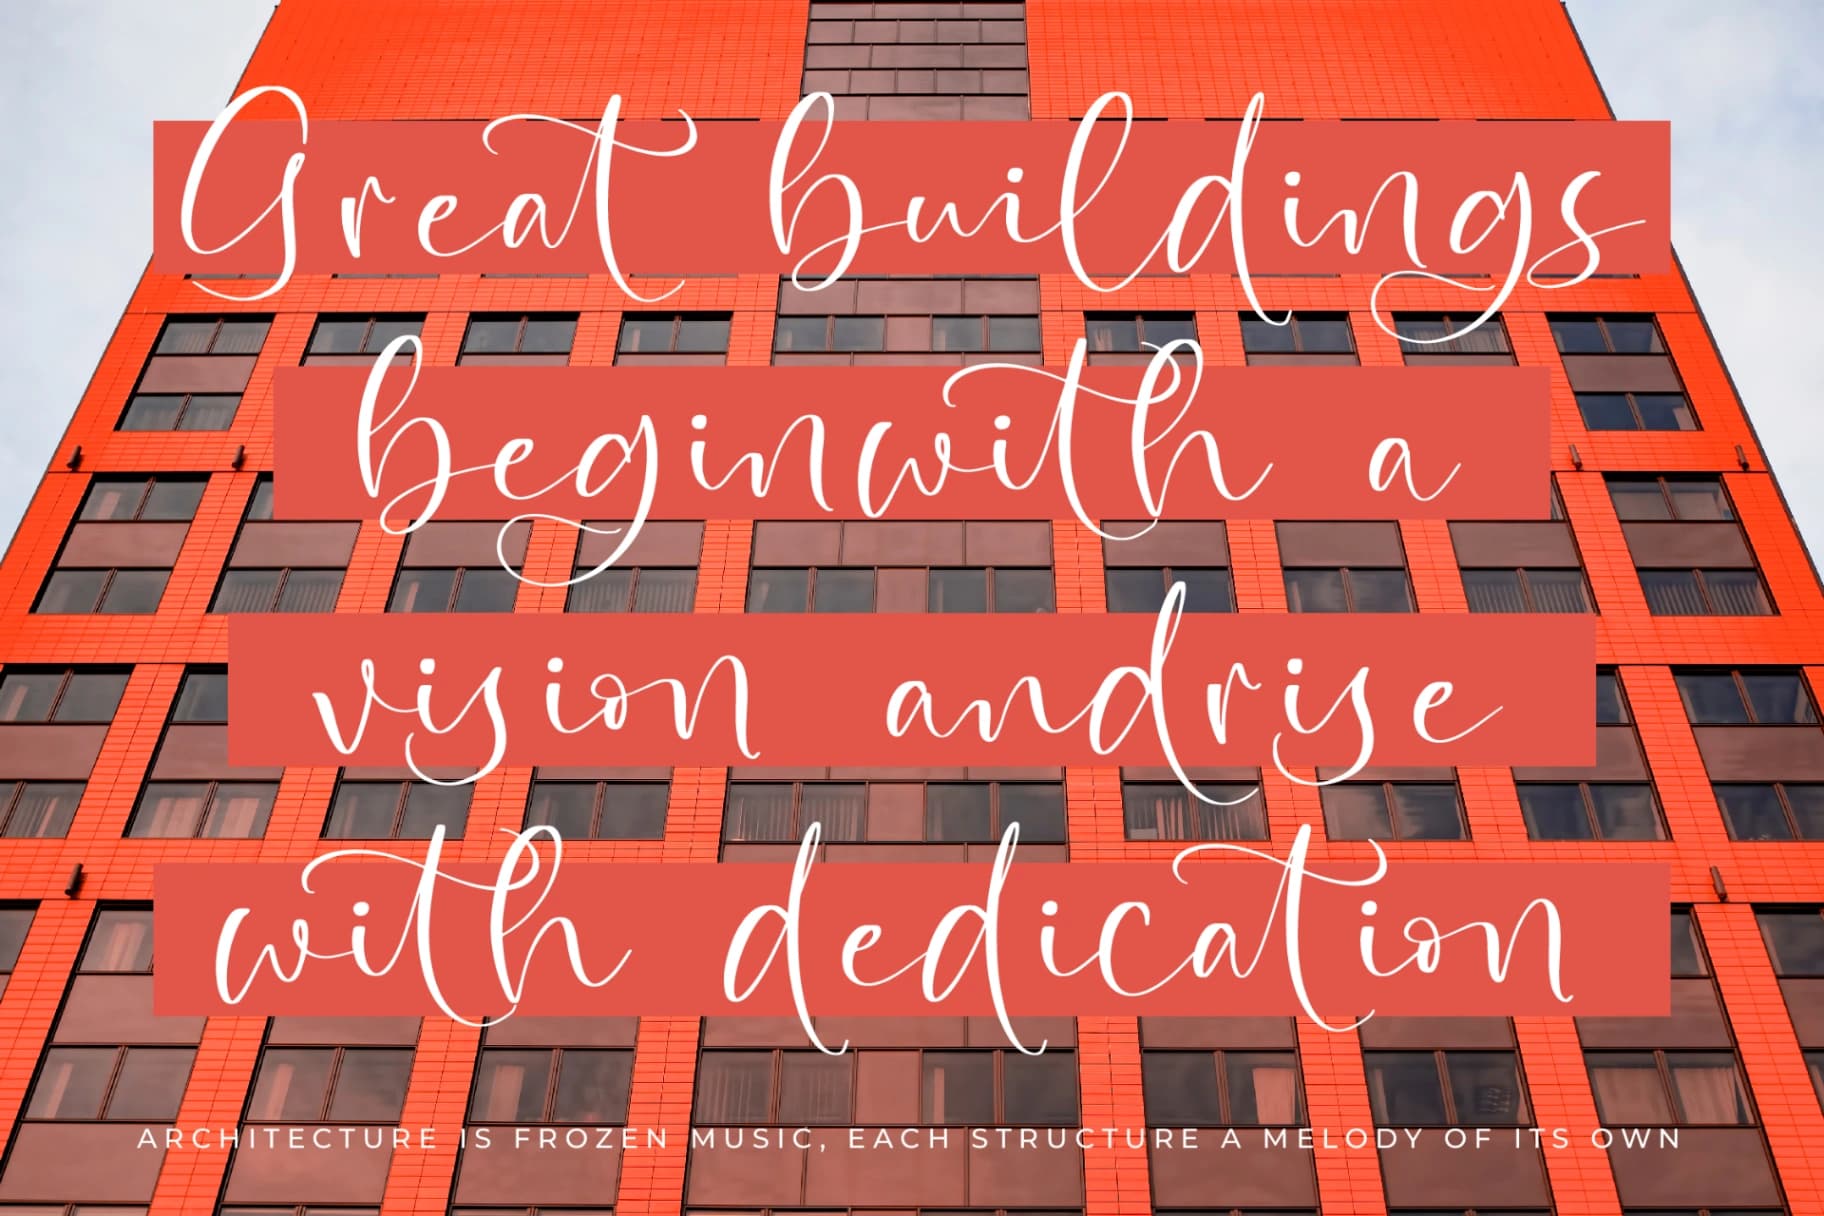 Great buildings
beginwith a
vision andrise
with dedication
ARCHITECTURE IS FROZEN MUSIC, EACH STRUCTURE A MELODY OF ITS OWN